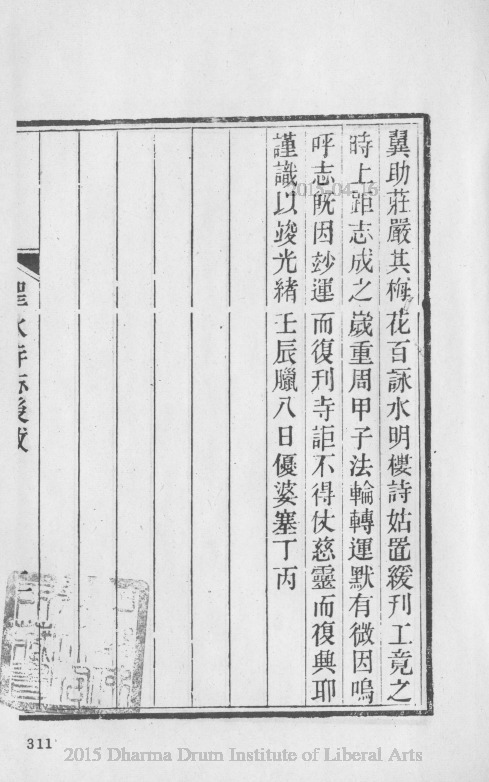 翼助莊嚴其梅花百詠水明樓詩姑置緩刊工竟之
時上距志成之歲重周甲子法輪轉運默有微因嗚
呼志旣因玅運而復刊寺詎不得仗慈靈而復興耶
謹識以竣光緒壬辰臘八日優婆塞丁丙
2015-04-16
311
2015 Dharma Drum Institute of Liberal Arts